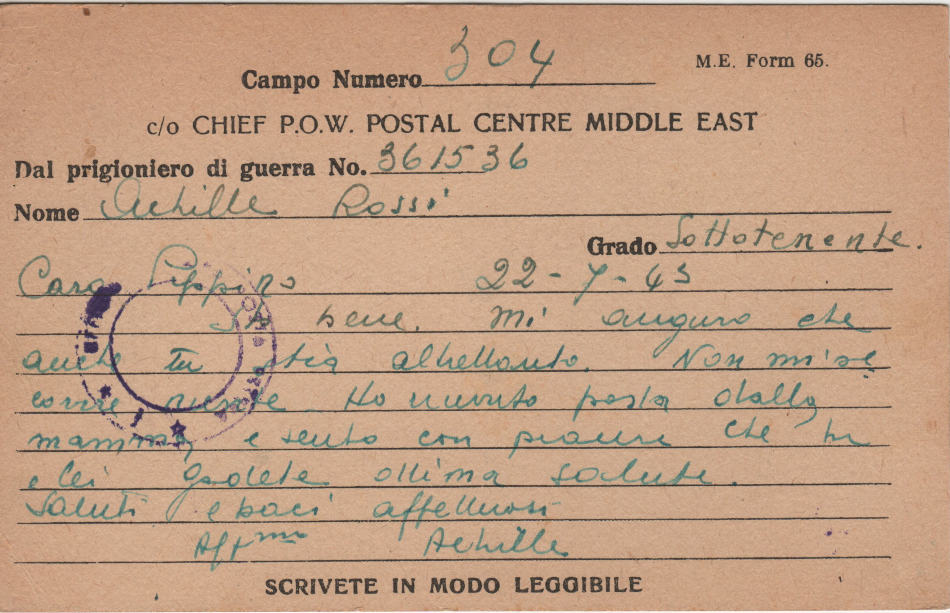 Campo Numero 304
M.E. Form 65.
c/o CHIEF P.O.W. POSTAL CENTRE MIDDLE EAST
Dal prigioniero di guerra No. 361536
Nome Achille Rossi
Grado Sottotenente.
Caro Peppino 22-7-43
Sto bene. Mi auguro che
anche tu stia altrettanto. Non mi oc
corre niente. Ho ricevuto posta dalla
mamma, e sento con piacere che tu
e lei godete ottima salute.
Saluti e baci affettuosi
Aff.mo Achille
SCRIVETE IN MODO LEGGIBILE